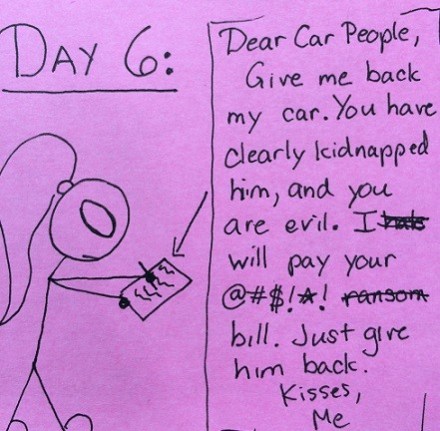 DAY 6:
Dear Car People,
Give me back
my car. You have
clearly kidnapped
him, and you
are evil. I hate
will pay your
@#$!*! ransom
bill. Just give
him back.
Kisses,
Me